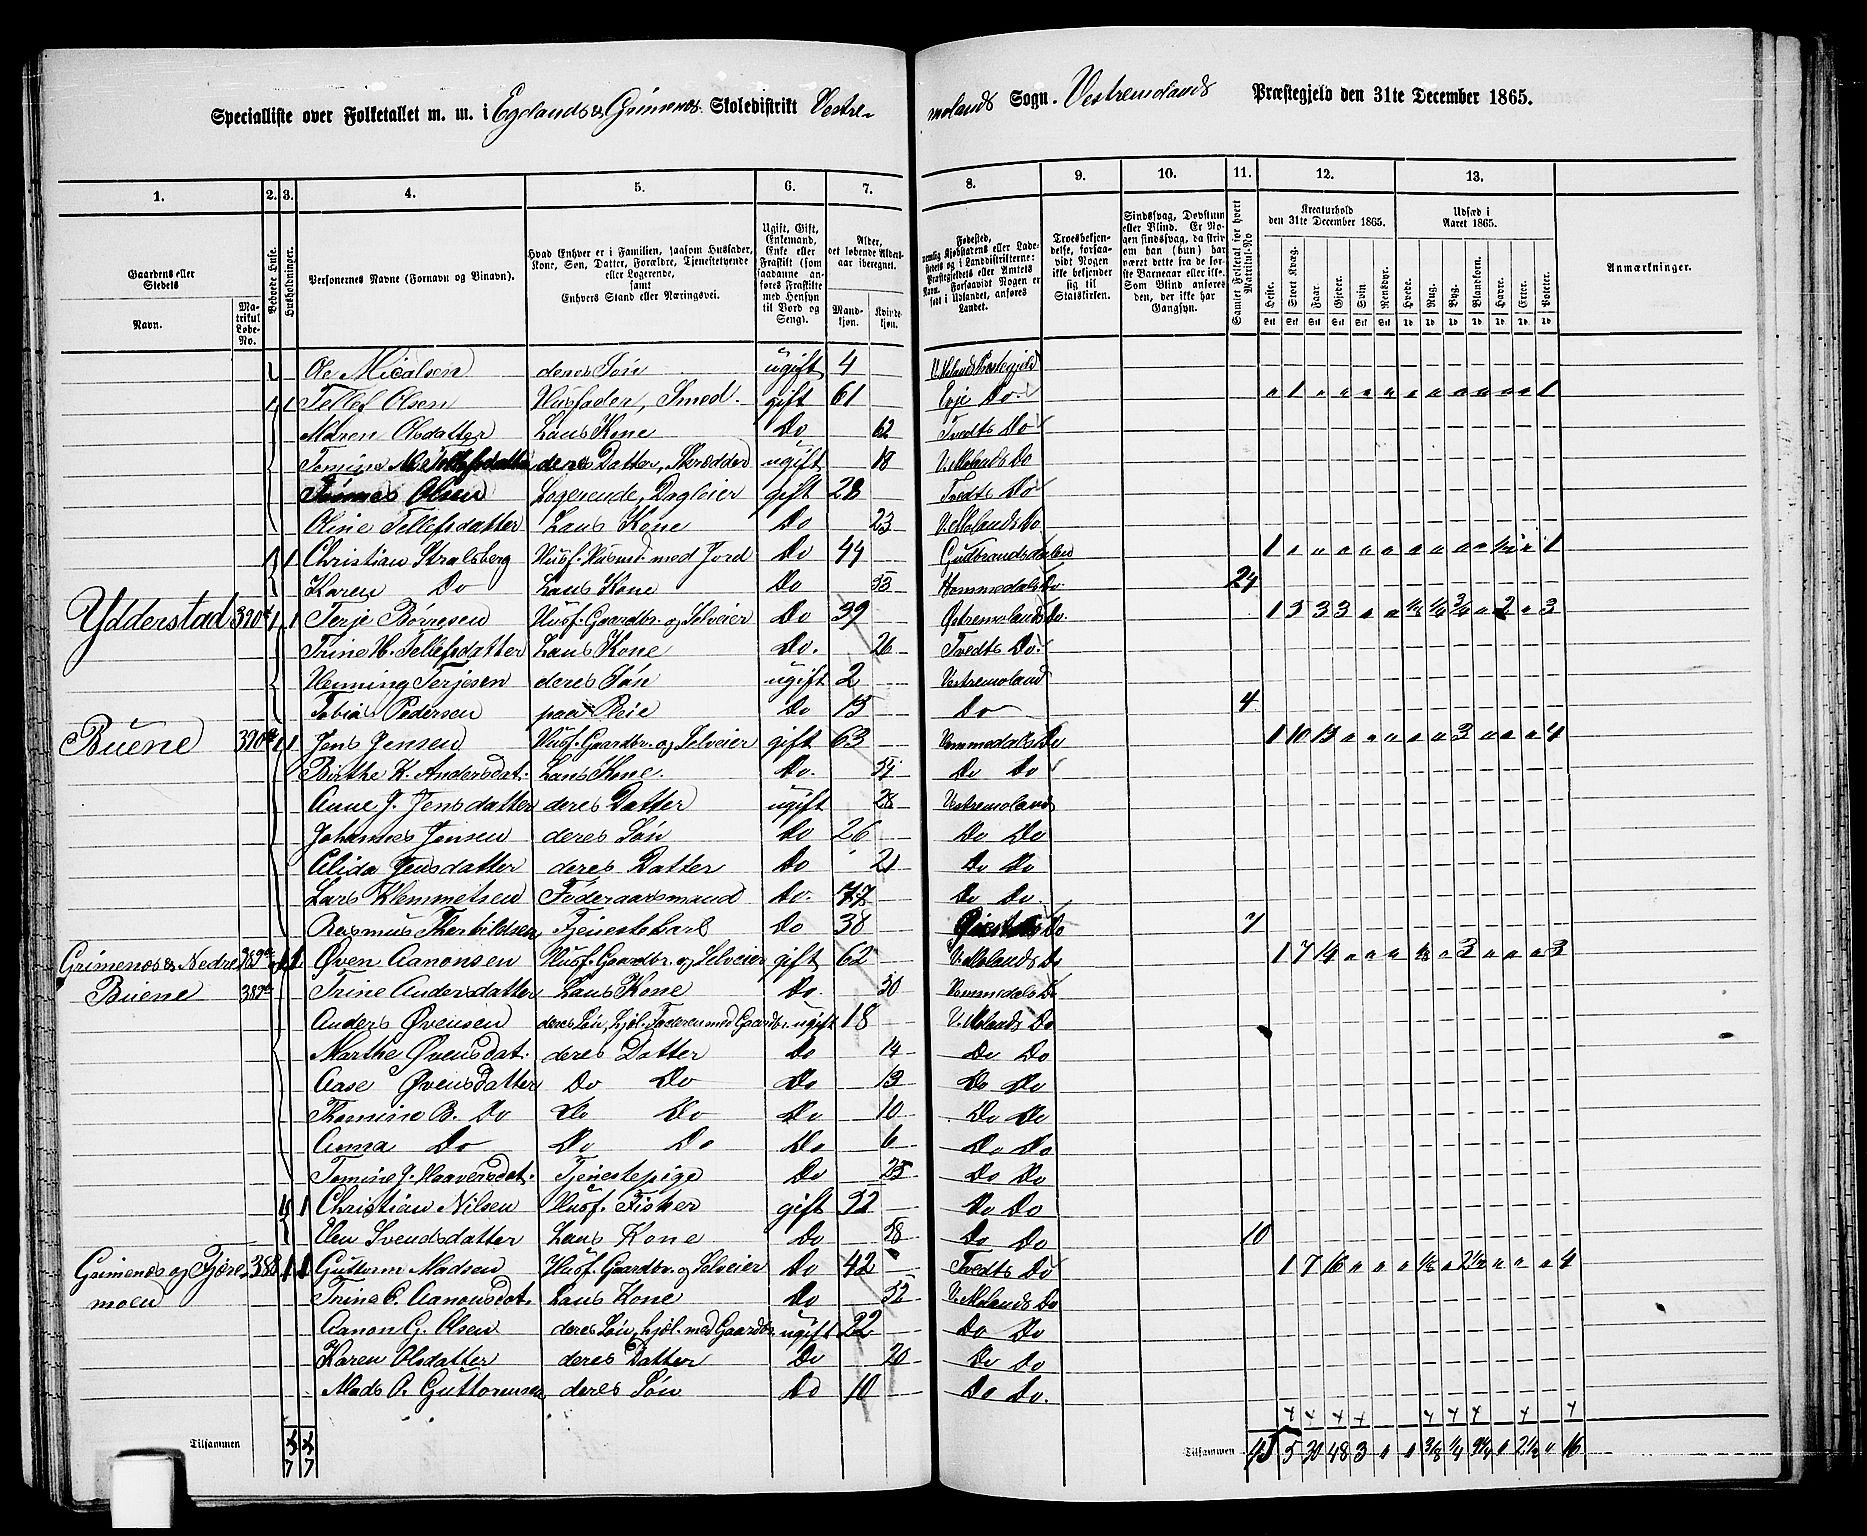 Specialliste over Folketallet m. m. i Eglands & Grimenæs Skoledistrikt Vestre-molands Sogn. Vestremolands Præstegjeld den 31te December 1865.
1. 2. 3. 4. 5. 6. 7. 8. 9. 10. 11. 12. 13.
Gaardens eller Stedets Navn. Matrikul Løbe-No. Beboede Huse. Husholdninger. Personernes Navne (Fornavn og Tilnavn). Hvad Enhver er i Familien, saasom Husfader, Kone, Søn, Datter, Forældre, Tjenestetyende eller Logerende, samt Enhvers Stand eller Næringsvei. Ugift, Gift, Enkemand, Enke eller Fraskilt (som saadanne anføres Fraskilte med Hensyn til Bord og Seng). Alder, det løbende Alders-aar iberegnet. Mand-kjøn. Kvinde-kjøn.
Troesbekjendelse, forsaavidt Nogen ikke bekjender sig til Statskirken. Kreaturhold den 31te December 1865. Udsæd i Aaret 1865. Anmærkninger.
Heste. Stort Kvæg. Faar. Gjeder. Svin. Rensdyr. Hvede. Rug. Byg. Blandkorn. Havre. Erter. Poteter.
Ole Micalsen deres Søn ugift 4 V. Molands Præstegjeld
1 1 Tellef Olsen Husfader, Smed. gift 61 Eoje Do. 1 1
Maren Olsdatter Hans Kone Do 62 Tvedts Do
deres Datter, Skrædder ugift 18 V. Molands Do
Olsen Logerende, Dagleier gift 28 Tvedts Do
Oline Tellefsdatter Hans Kone Do 23 V. Molands Do
1 1 Christian Stralsberg Husf. Husmd med Jord Do 44 Gudbrandsdalen 1
Karen Do Hans Kone Do 53 Hommedals Do. 24
Ydderstad 390 1 1 Terje Børresen Husf. Gaardbr. og Selveier Do 39 Østremolands Do. 1 5 3 3 2 3
Trine H. Tellefsdatter Hans Kone Do. 26 Tvedts Do.
Henning Terjesen deres Søn ugift 2 Vestremoland
Tobias Pedersen paa Pleie Do 15 Do 4
Buene 390 1 1 Jens Jensen Husf. Gaardbr. og Selveier gift 63 Hommedals Do 1 10 13 3 4
Birthe K. Andersdat. Hans Kone. Do. 59 Do Do
Anne J. Jensdatter deres Datter ugift 28 Vestremoland
Johannes Jensen deres Søn Do 26 Do Do
Alida Jensdatter deres Datter Do 21 Do Do
Lars Klemmetsen Føderaadsmand Do. 77 Do Do.
Rasmus Therkildsen Tjenestekarl Do 38 Do 7
Grimenæs & Nedre 389 1 1 Øven Aanonsen Husf. Gaardbr. og Selveier gift 62 V. Molands Do 1 7 14 3 3
Buene 389 Trine Andersdatter Hans Kone Do. 50 Hommedals Do
Anders Øvensen deres Søn, hjæl. Faderen med Gaardbr. ugift 18 V. Molands Do
Marthe Øvensdat. deres Datter Do 14 Do Do
Aase Øvensdatter Do Do Do 13 Do Do
Thomine B. Do Do Do Do 10 Do Do
Anna Do Do Do Do 6 Do Do
Tomine J. Haaversdat. Tjenestepige Do 25 Do Do
1 1 Christian Nilsen Husf. Fisker gift 52 Do Do
Elen Svendsdatter Hans Kone Do 58 Do Do 10
Grimenæs og Fjære- 388 1 1 Guttorm Madsen Husf. Gaardbr. og Selveier Do 42 Tvedts Do 1 7 16 2½ 4
moen Trine A. Aanonsdat. Hans Kone Do 52 V. Molands Do
Aanon G. Olsen deres Søn, hjæl. med Gaardbr. ugift 22 Do Do
Karen Olsdatter deres Datter Do 20 Do Do
Mads A. Guttormsen deres Søn Do 10 Do Do.
Tilsammen 7 7 Tilsammen 45 5 30 48 3 16